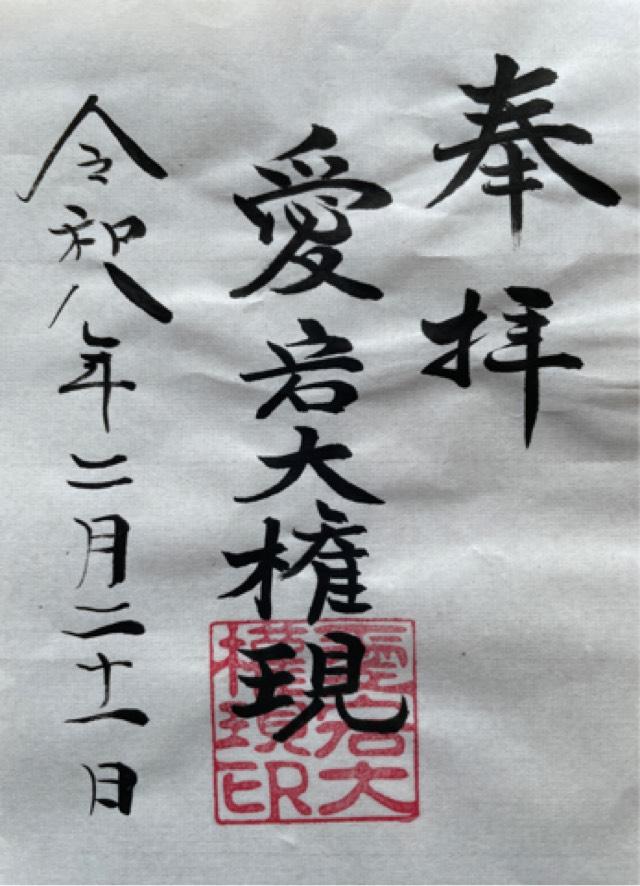 奉拝
愛宕大権現
令和八年二月二十一日
愛宕大
権現印